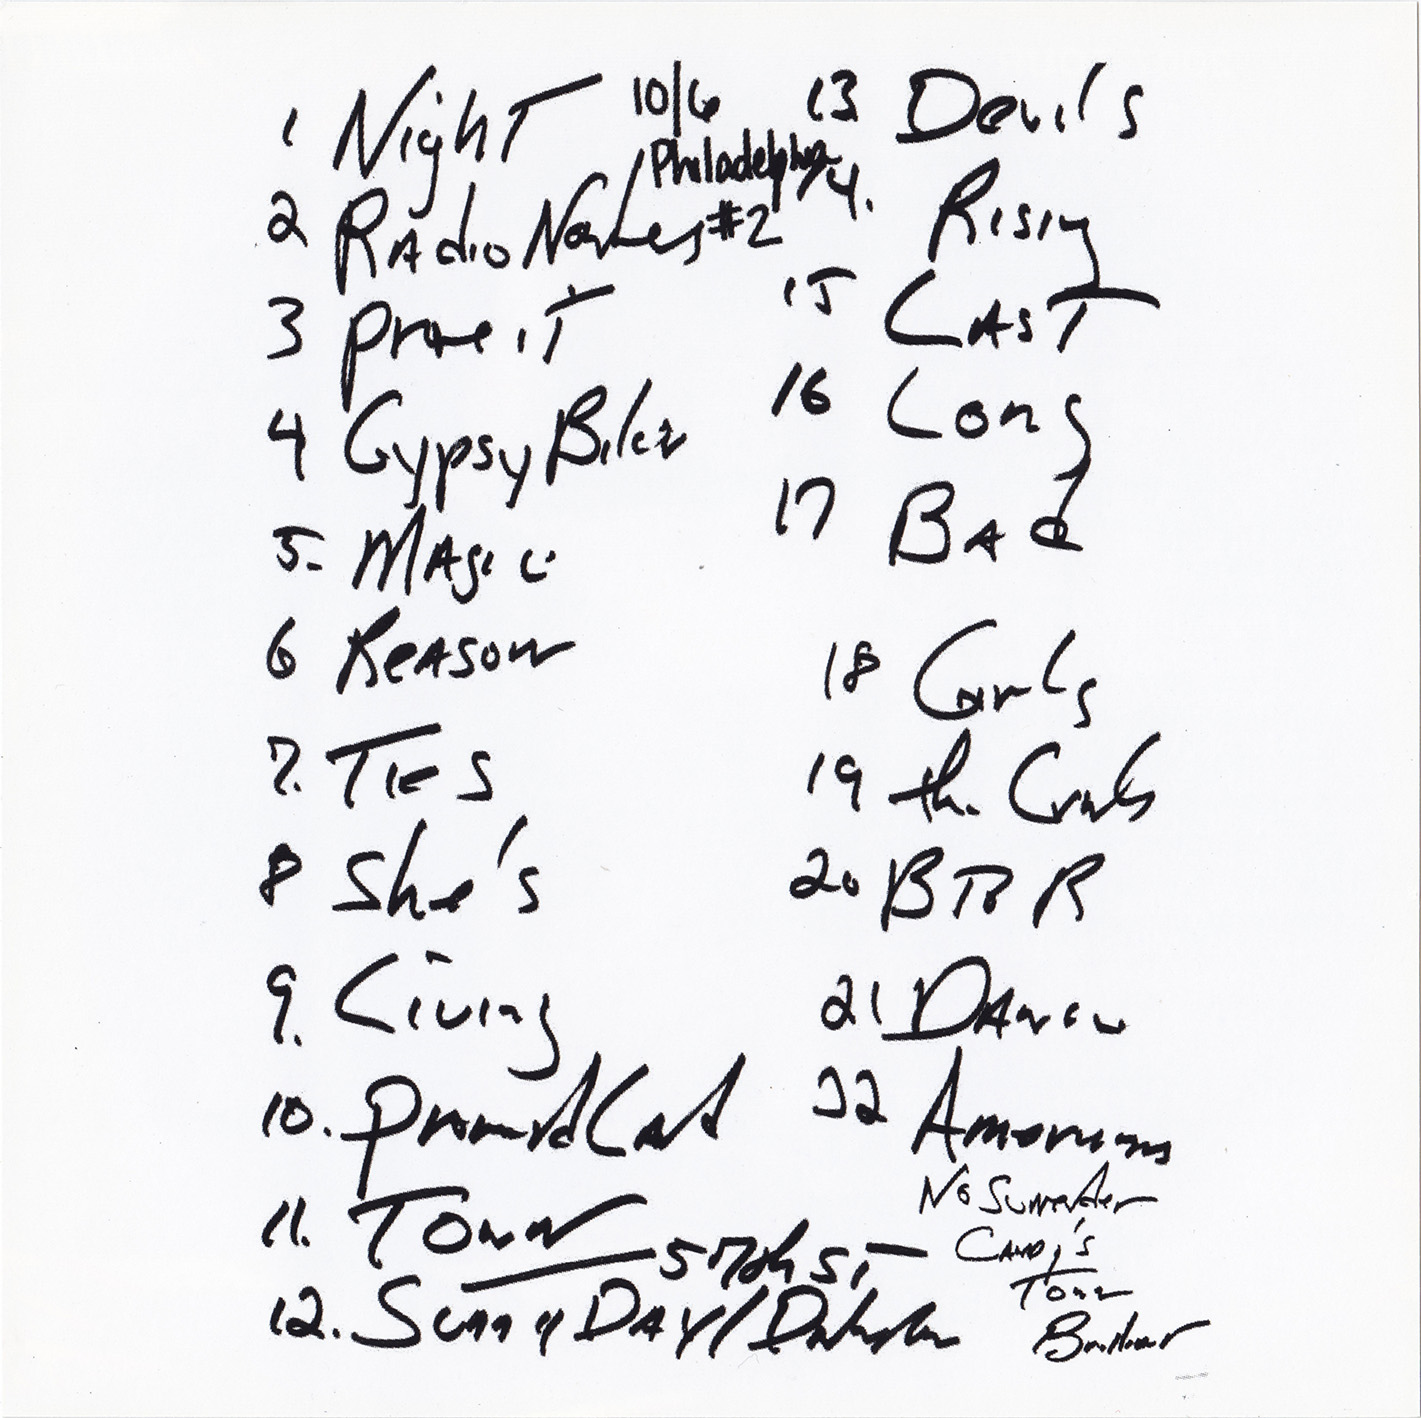 1 Night
10/6
Philadelphia
2 Radio Nowhere #2
3 Prove it
4 Gypsy Biker
5. Magic
6 Reason
7. TES
8 She's
9. Living
10. Promised Land
11. Town
57th ST
12. Sunny Day/
13 Devils
14. Rising
15 LAST
16 Long
17 Bad
18 Girls
19 the
20 BTR
21 Dancin
22 American
No Surrender
Candy's
Town